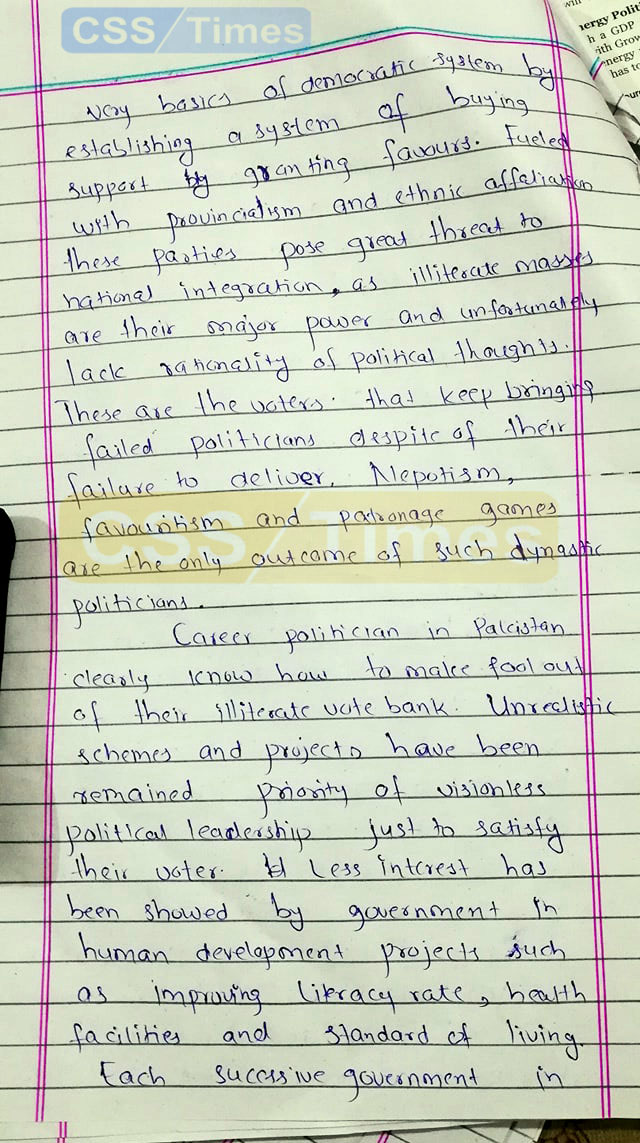 CSS/Times
ergy Polit
h a GDP
ith Grow
nergy
has to
very basics of democratic system by
establishing a system of buying
support by granting favours. Fueled
with provincialism and ethnic affaliation
these parties pose great threat to
national integration, as illiterate masses
are their major power and unfortunately
lack rationality of political thoughts.
These are the voters that keep bringing
failed politicians despite of their
failure to deliver. Nepotism,
favouritism and patronage games
CSS/Times
are the only outcome of such dynastic
politicians.
Career politician in Pakistan
clearly know how to make fool out
of their illiterate vote bank. Unrealistic
schemes and projects have been
remained priority of visionless
political leadership just to satisfy
their voter. Less interest has
been showed by government in
human development projects such
as improving literacy rate, health
facilities and standard of living.
Each sucessive government in